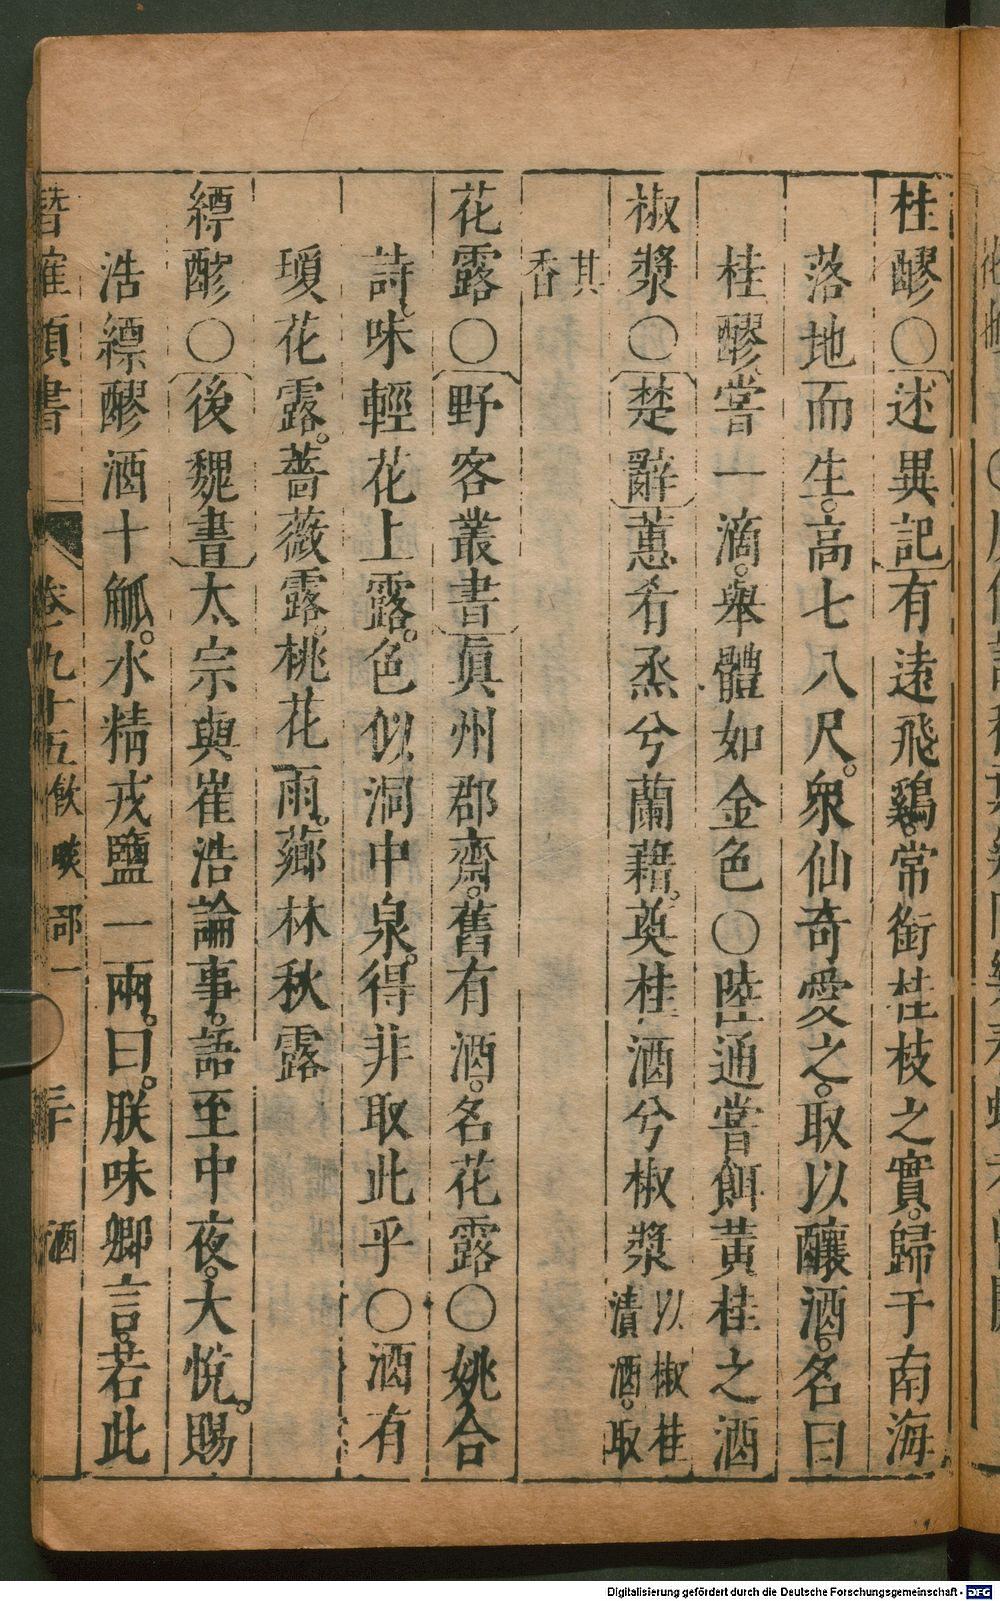 桂醪○述異記有遠飛鷄。常銜桂枝之實。歸于南海
落地而生。高七八尺。衆仙奇愛之。取以釀酒。名曰
桂醪。嘗一滴。舉體如金色○陸通嘗餌黃桂之酒
椒漿○楚辭蕙肴烝兮蘭藉。奠桂酒兮椒漿以椒桂漬酒。取
其香
花露○野客叢書眞州郡齋。舊有酒。名花露○姚合
詩。味輕花上露。色似洞中泉。得非取此乎○酒有
瓊花露。薔薇露。桃花雨。薌林秋露
縹醪○後魏書太宗與崔浩論事。語至中夜。大悅。賜
浩縹醪酒十觚。水精戎鹽一兩。曰。朕味卿言。若此
潛確類書 卷之九十五飲啖部一 二十 酒
Digitalisierung gefördert durch die Deutsche Forschungsgemeinschaft - DFG